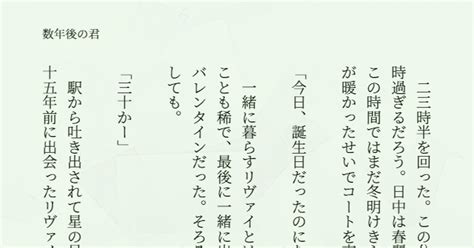 数年後の君
二三時半を回った。この
時過ぎるだろう。日中は春
この時間ではまだ冬明けき
が暖かったせいでコートを
「今日、誕生日だったのに
一緒に暮らすリヴァイとは
ことも稀で、最後に一緒に
バレンタインだった。そろ
しても。
「三十かー」
駅から吐き出されて星の
十五年前に出会ったリヴァ